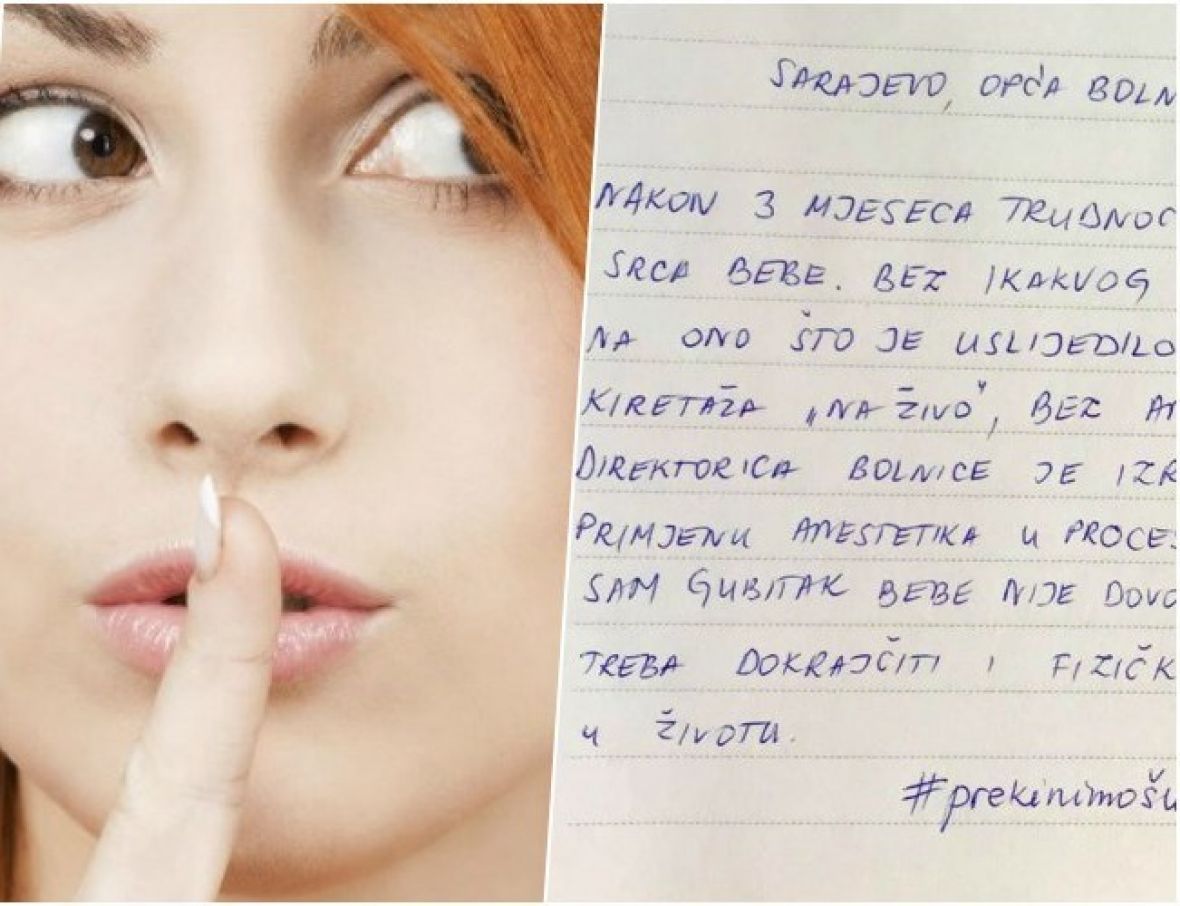 SARAJEVO, OPĆA BOLN
NAKON 3 MJESECA TRUDNOĆ
SRCA BEBE. BEZ IKAKVOG
NA ONO ŠTO JE USLIJEDILO
KIRETAŽA „NA ŽIVO“, BEZ AN
DIREKTORICA BOLNICE JE IZR
PRIMJENU ANESTETIKA U PROCES
SAM GUBITAK BEBE NIJE DOVO
TREBA DOKRAJČITI I FIZIČK
U ŽIVOTU.
#prekinimošu